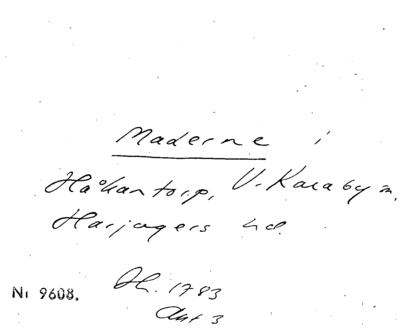 Maderne i
Håkantorp, V. Karaby sn.
Harjagers hd.
Nr 9608.
Dh. 1783
Akt 3